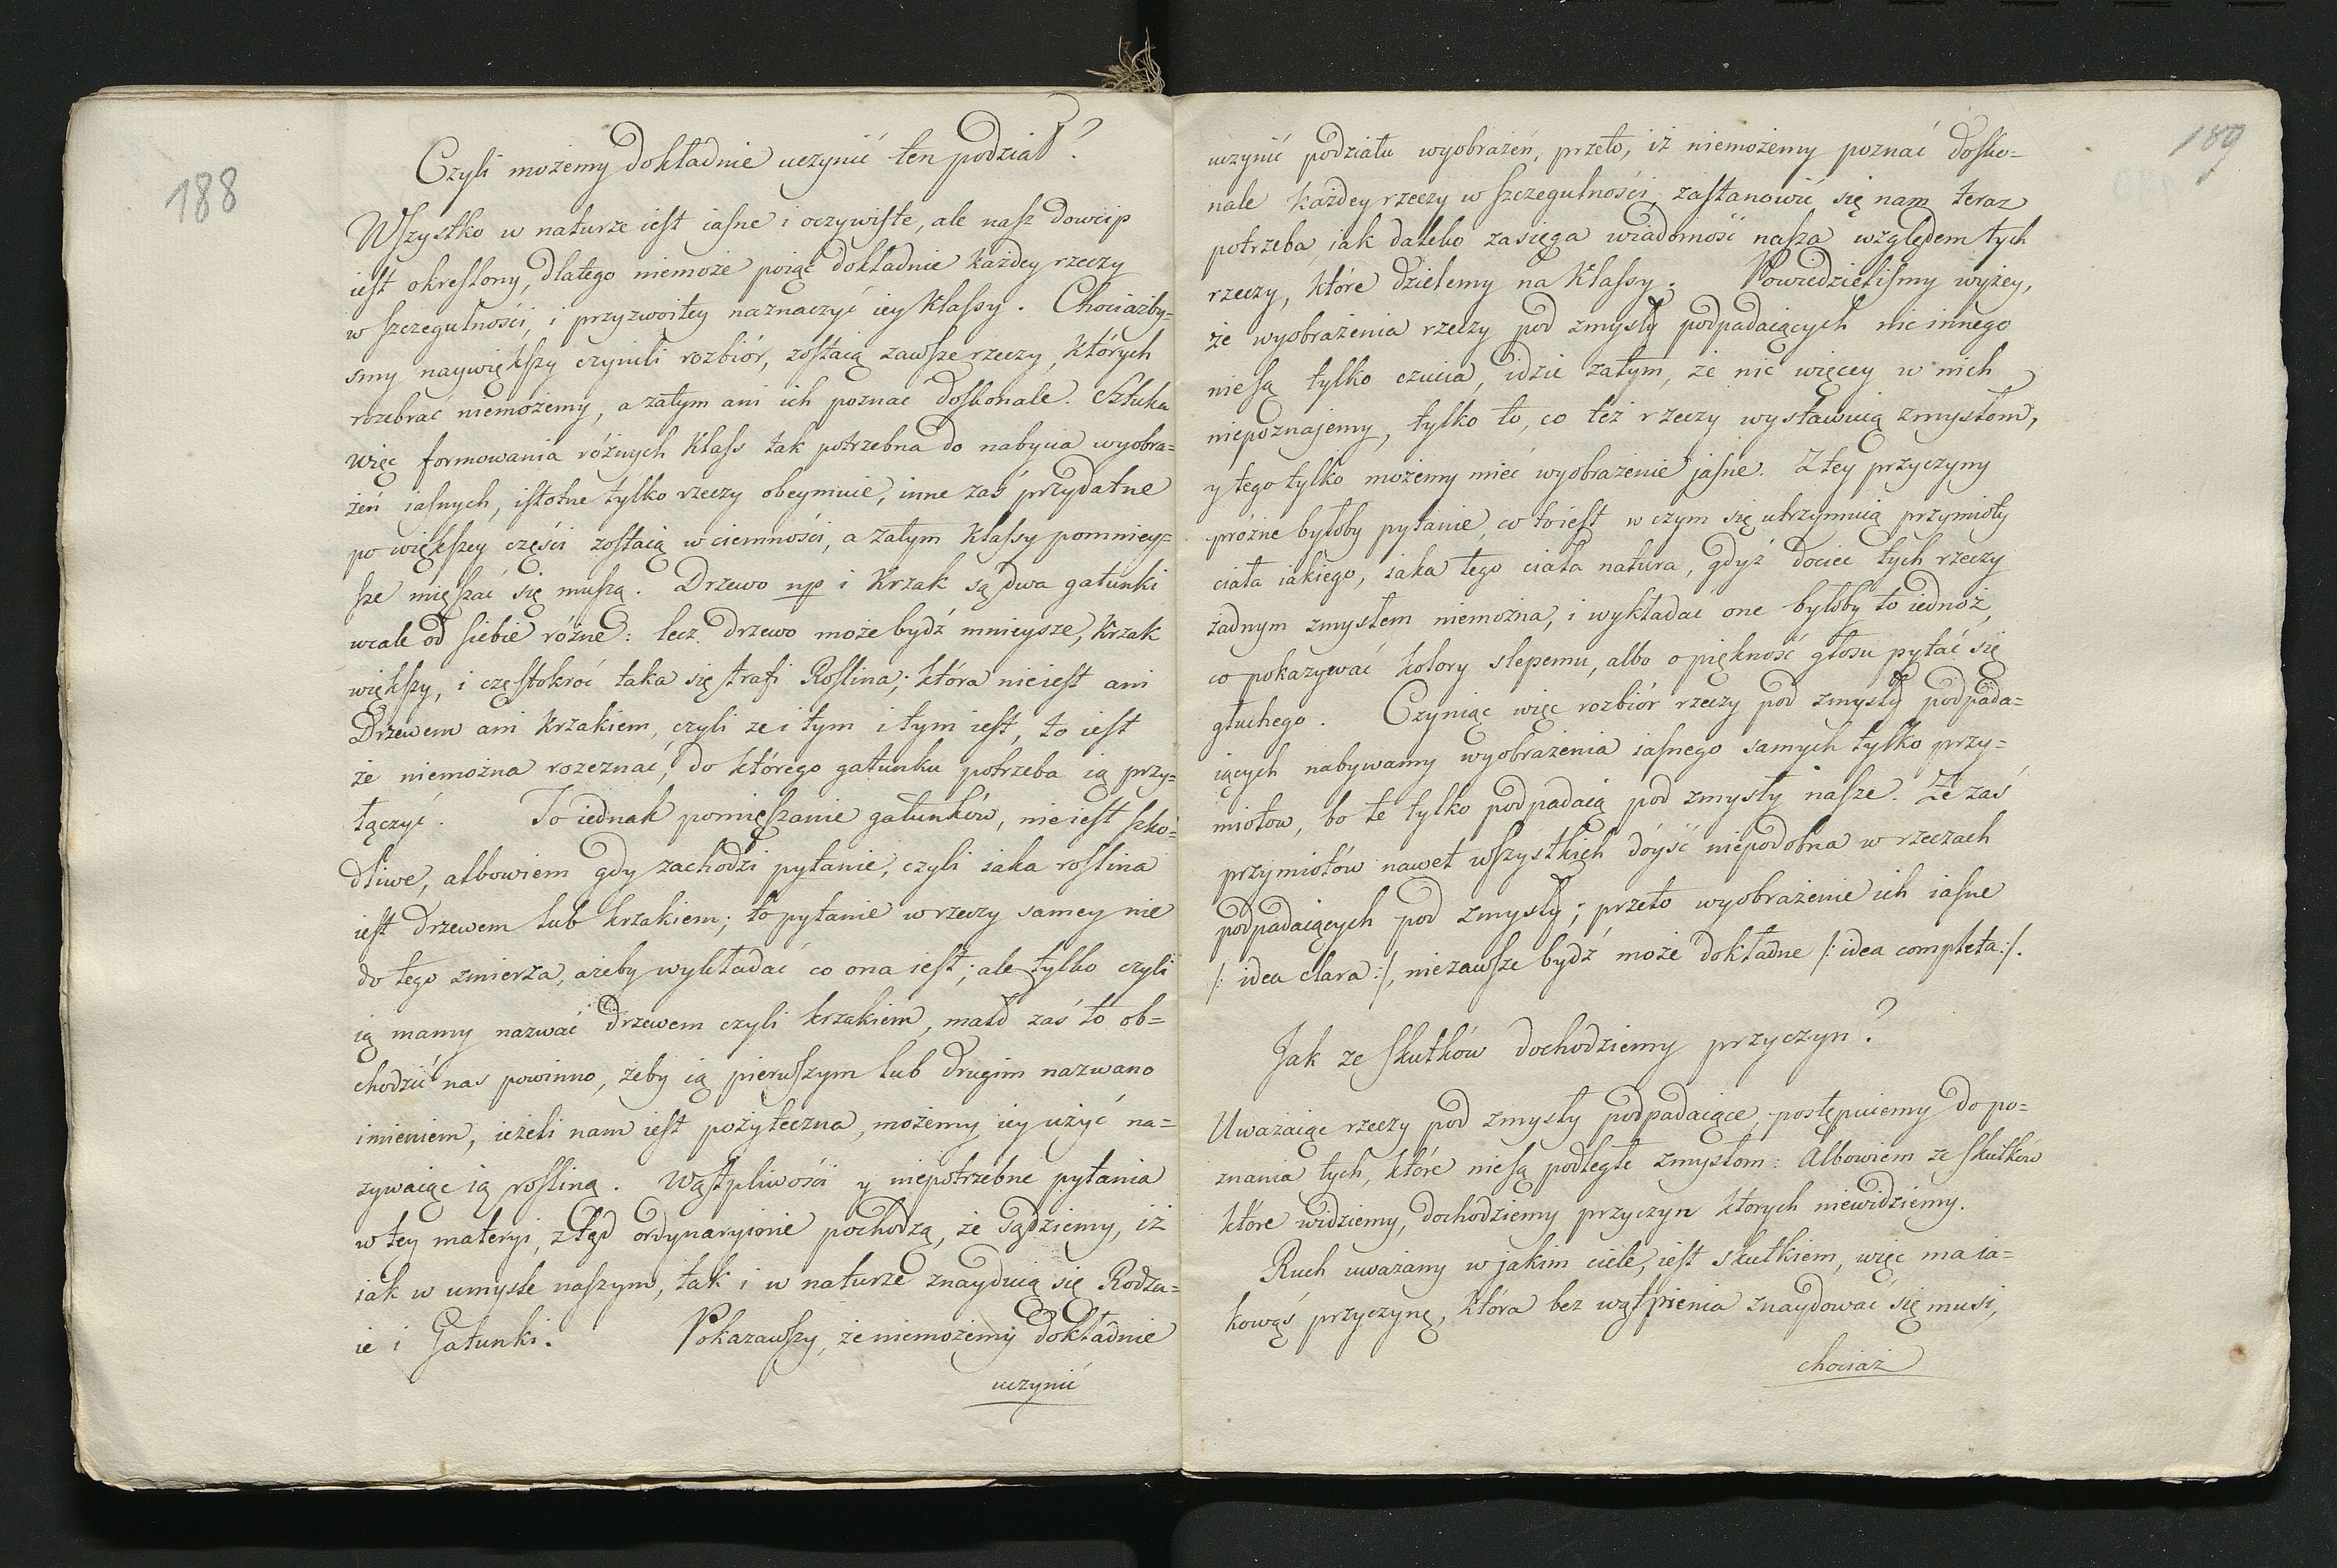 188
Czyli możemy dokładnie uczynić ten podział?
Wſzystko w naturze ieſt iaſne i oczywiſte, ale naſz dowcip
ieſt okreſlony, dlatego niemoże poiąć dokładnie każdey rzeczy
w ſzczegulności, i przyzwoitey naznaczyć iey Klaſsy. Chociażby=
smy naywiękſzy czynili rozbiór, zoſtaią zawſze rzeczy, których
rozebrać niemożemy, a zatym ani ich poznać doſkonale. Sztuka
więc formowania różnych Klaſs tak potrzebna do nabycia wyobra=
żeń iaſnych, iſtotne tylko rzeczy obeymuie, inne zaś przydatne
po więkſzey części zoſtaią w ciemności, a zatym Klaſsy pomniey=
ſze mięſzać się muſzą. Drzewo np i Krzak są dwa gatunki
wcale od ſiebie różne: lecz drzewo może bydź mnieysze, Krzak
więkſzy, i częſtokroć taka się trafi Roſlina; która nieieſt ani
Drzewem ani Krzakiem, czyli ze i tym i tym ieſt, to ieſt
że niemożna rozeznać, do którego gatunku potrzeba ią przy=
łączyć. To iednak pomięſzanie gatunków, nieieſt ſzko=
dliwe, albowiem gdy zachodzi pytanie, czyli iaka roſlina
ieſt drzewem lub krzakiem; to pytanie w rzeczy samey nie
do tego zmierza, ażeby wykładać co ona ieſt; ale tylko czyli
ią mamy nazwać drzewem czyli krzakiem, mało zaś to ob=
chodzić nas powinno, żeby ią pierwſzym lub drugim nazwano
imieniem, ieżeli nam ieſt pożyteczna, możemy iey użyć na=
zywaiąc ią roſliną. Wątpliwości y niepotrzebne pytania
w tey materyi, ztąd ordynaryinie pochodzą, że sądziemy, iż
iak w umyśle naſzym, tak i w naturze znayduią się Rodza=
ie i Gatunki. Pokazawſzy, że niemożemy dokładnie
uczynić
189
uczynić podziału wyobrażeń, przeto, iż niemożemy poznać doſko=
nale każdey rzeczy w ſzczegulności, zaſtanowić się nam teraz
potrzeba, iak daleko zasięga wiadomość naſza względem tych
rzeczy, które dzielemy na Klaſsy. Powiedzieliſmy wyżey,
że wyobrażenia rzeczy pod zmysły podpadaiących nic innego
nieſą tylko czucia, idzie zatym, że nic więcey w nich
niepoznajemy, tylko to, co też rzeczy wystawuią zmysłom,
y tego tylko możemy mieć wyobrażenie jaſne. Z tey przyczyny
próżne byłoby pytanie, co to ieſt w czym się utrzymuią przymioty
ciała iakiego, iaka tego ciała natura, gdyż dociec tych rzeczy
żadnym zmysłem niemożna, i wykładać one byłoby to iednoż,
co pokazywać kolory slepemu, albo o piękność głosu pytać się
głuchego. Czyniąc więc rozbiór rzeczy pod zmysły podpada=
iących nabywamy wyobrażenia iaſnego samych tylko przy=
miotow, bo te tylko podpadaią pod zmysły naſze. Że zaś
przymiotów nawet wſzystkich dóyść niepodobna w rzeczach
podpadaiących pod zmysły; przeto wyobrażenie ich iaſne
/: idea clara :/, niezawſze bydź może dokładne /: idea completa :/.
Jak ze ſkutków dochodziemy przyczyn?
Uważaiąc rzeczy pod zmysły podpadaiące, postępuiemy do po=
znania tych, które nieſą podległe zmysłom: Albowiem ze ſkutków
które widziemy, dochodziemy przyczyn ktorych niewidziemy.
Ruch uważamy w jakim ciele, ieſt skutkiem, więc ma ia=
kowąś przyczynę, która bez wątpienia znaydować się musi,
chociaż